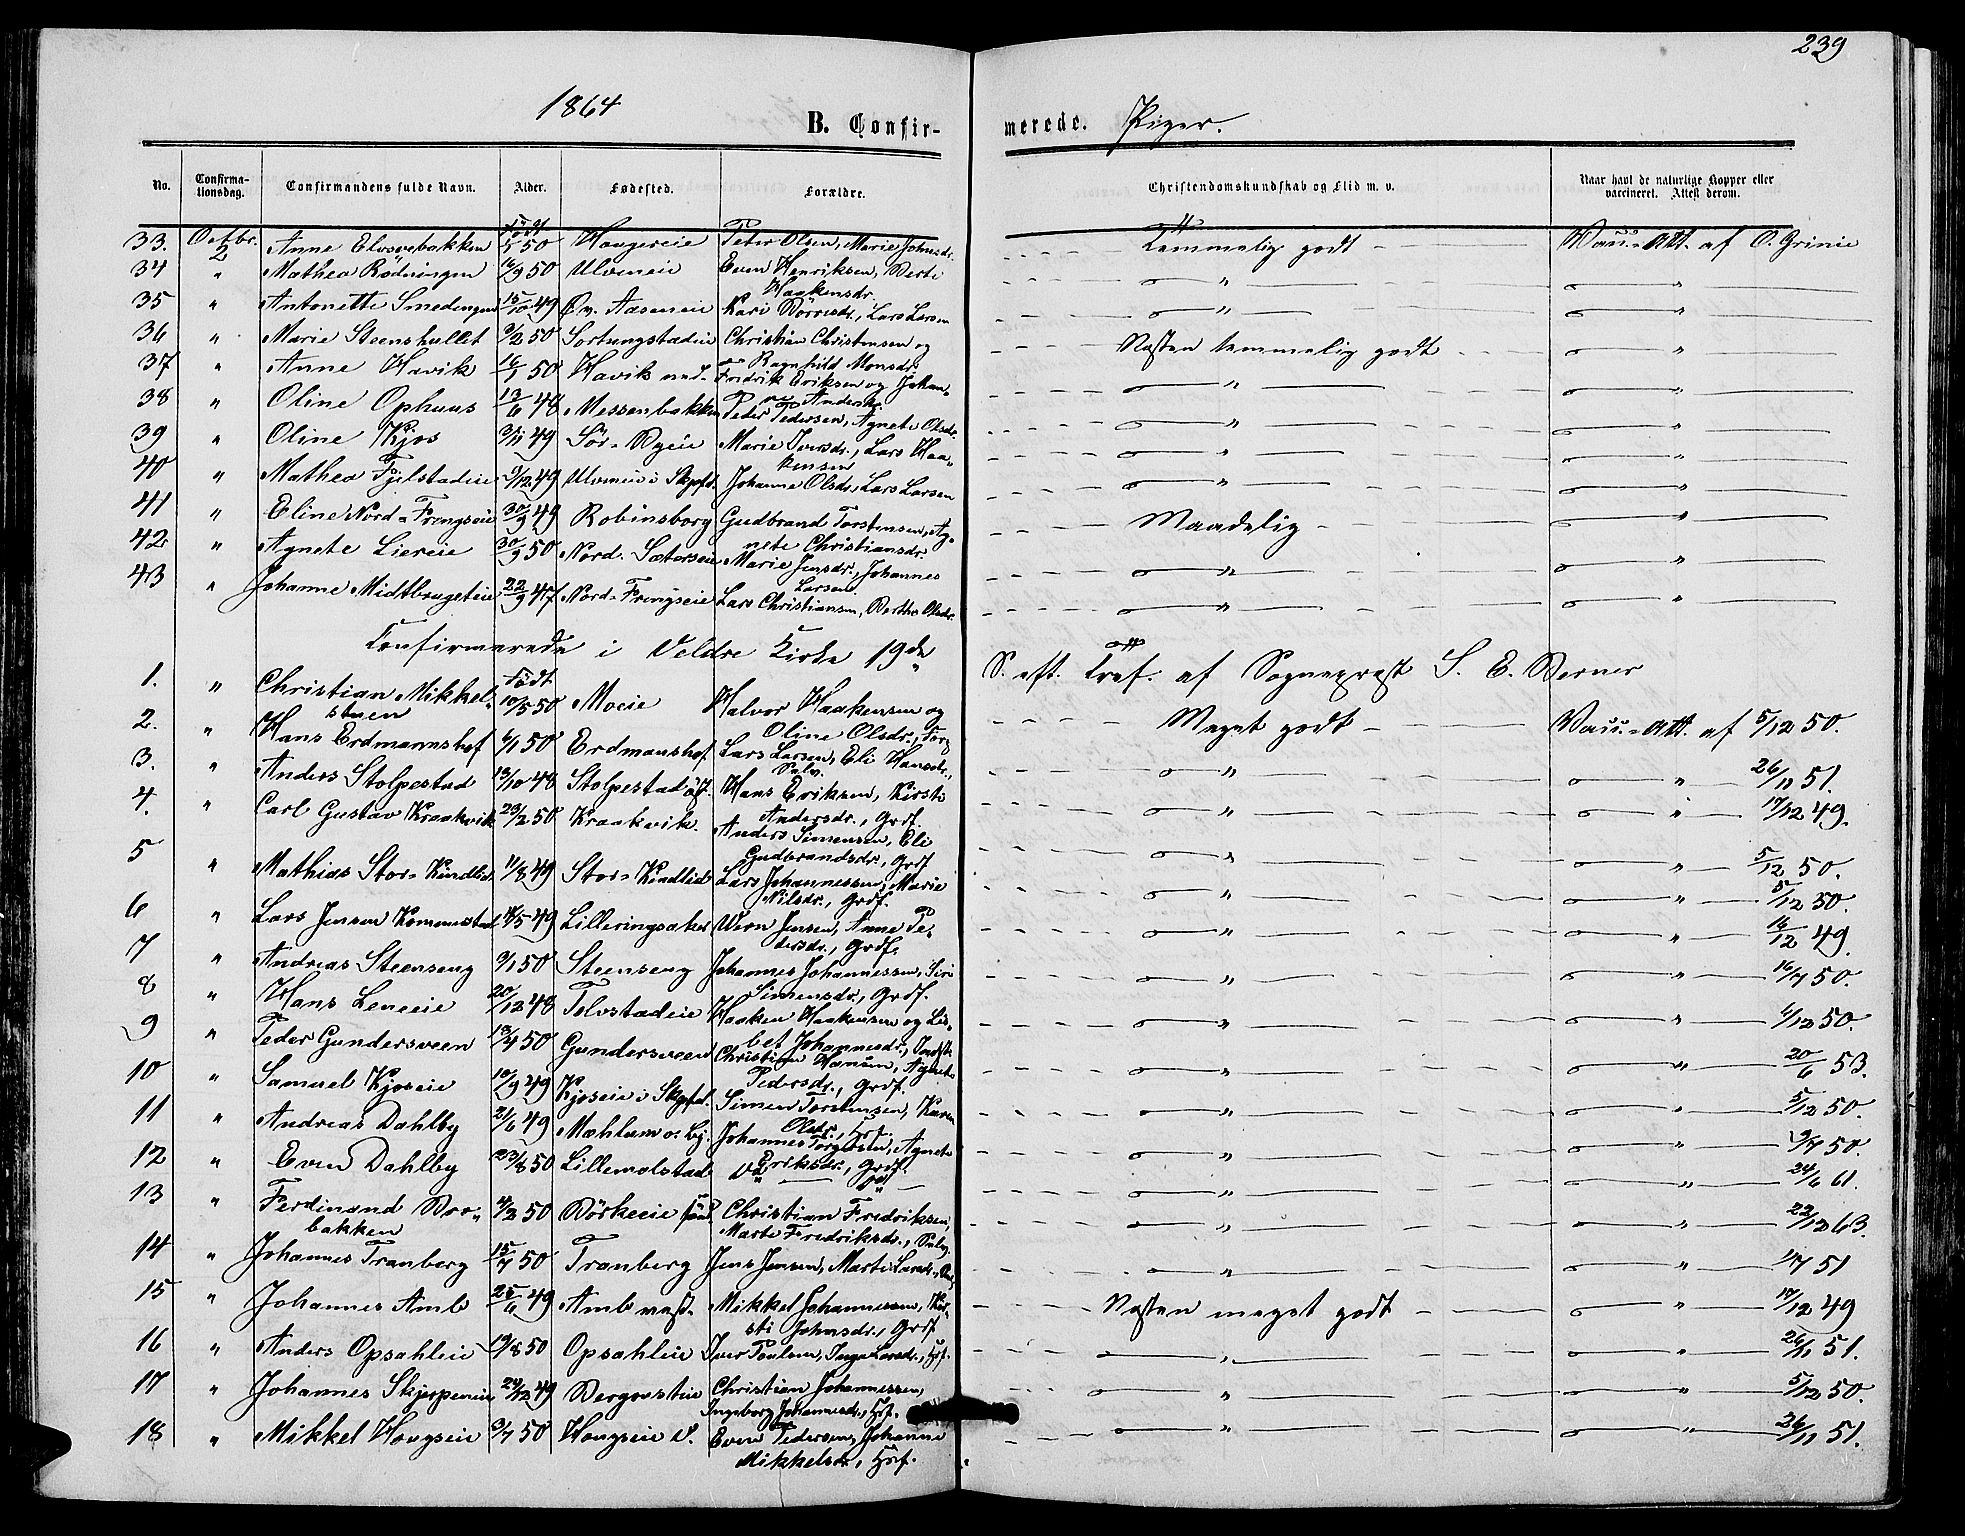 239
1864
B. Confirmerede. Piger.
No. Confirmationsdag. Confirmandens fulde Navn. Alder. Fødested. Forældre. Christendomskundskab og Flid m. v. Naar havt de naturlige Kopper eller vaccineret. Attest derom.
Født
33. Octbr. 2 Anne 50 Haugereie Peter Olsen, Marie Johnsdr. Temmelig godt - Vacc.-Att. af O. Grinie
34 " Mathea Rödningen 16/9 50 Ulvmeie Even Henriksen, Berte Haakensdr. " "
35 " Antonette Smedengen 15/10 49 Øv. Aaseneie Kari Börresdr., Lars Larsen " "
36 " Marie Steenshullet 9/2 50 Sortungstadeie Christian Christensen og Ragnhild Monsdr. Næsten temmelig godt "
37 " Anne Havik 16/1 50 Havik ned. Fredrik Eriksen og Johanne Andersdr. " "
38 " Oline Ophuus 13/6 48 Messenbakken Peder Pedersen, Agnete Olsdr. " "
39 " Oline Kjos 3/11 49 Sör-Byeie Marie Iversdr., Lars Haakensen " "
40 " Mathea Fjelstadeie 9/12 49 Ulvmeie i Skpfd. Johanne Olsdr., Lars Larsen " "
41 " Eline Nord-Frengseie 30/9 49 Robinsborg Gudbrand Torstensen, Agnete Christiansdr. Maadelig "
42 " Agnete Liereie 30/9 50 Nord. Sæterseie Marie Jensdr., Johannes Larsen " "
43 " Johanne Midtbrugeteie 22/9 47 Nord-Frengseie Lars Christiansen, Berthe Olsdr. " "
Confirmerede i Veldre Kirke 19de S. eft. Tref. af Sogneprest S. E. Berner
Født
1. " Christian Mikkelstuen 10/5 50 Moeie Halvor Haakensen og Oline Olsdr., Meget godt - Vacc.-Att. af 5/12 50.
2. " Hans Erdmannshof 6/1 50 Erdmanshof Lars Larsen, Eli Hansdr., Selv. " " 26/11 51.
3. " Anders Stolpestad 13/10 48 Stolpestad öst. Hans Eriksen, Kirsti Andersdr., Grdf. " " 17/12 49.
4. " Carl Gustav Kraakvik 23/2 50 Kraakvik. Anders Simensen, Eli Gudbrandsdr., Grdf " " 5/12 50.
5 " Mathias Stor-Kindlid 11/8 49 Stor-Kindlid Lars Johannessen, Marie Nilsdr., Grdf. " " 5/12 50.
6 " Lars Jensen Kommenstad 49 Lillerings­aker Wern Jensen, Anne Pedersdr., Grdf. " " 16/12 49.
7 " Andreas Steenseng 9/1 50 Steenseng Johannes Johannessen, Siri Simensdr., Grdf. " " 16/7 50.
8 " Hans Leneeie 20/12 48 Tolvstadeie Haaken Haakensen og Lisbet Johannesdr., Indst. " " 6/12 50.
9 " Peder Gundersveen 13/4 50 Gundersveen Christian Hansen, Agnete Pedersdr., Grdf. " " 20/6 53.
10 " Samuel Kjoseie 10/9 49 Kjoseie i Skpfd. Simen Torstensen, Karen Olsdr., Hsf. " " 5/12 50.
11 " Andreas Dahlby 21/6 49 Mæhlum o. Ej. Johannes Torgersen, Agnete Eriksdr., Grdf. " " 9/7 50.
12 " Even Dahlby 23/8 50 Lillemolstad " " " " 24/6 61.
13 " Ferdinand Borbakken 4/2 50 Börkeeie Christian Fredriksen, Marte Fredriksdr., Selv. " " 22/12 63.
14 " Johannes Tranberg 15/7 50 Tranberg Jens Jensen, Marte Larsdr., " " 51
15 " Johannes Amb 25/6 49 Amb vest. Mikkel Johannessen, Kirsti Johnsdr., Grdf Næsten meget godt " 17/12 49
16 " Anders Opsahleie 19/8 50 Opsahleie Iver Poulsen, Inge Larsdr., Hsf. " " 26/11 51.
17 " Johannes Skjerpeneie 24/12 49 Bergerseteie Christian Johannessen, Ingeborg Johannesdr., Hsf. " " 5/12 50.
18 " Mikkel Hougseie 9/7 50 Hougseie V. Even Pedersen, Johanne Mikkelsdr., Hsf. " " 26/11 51.